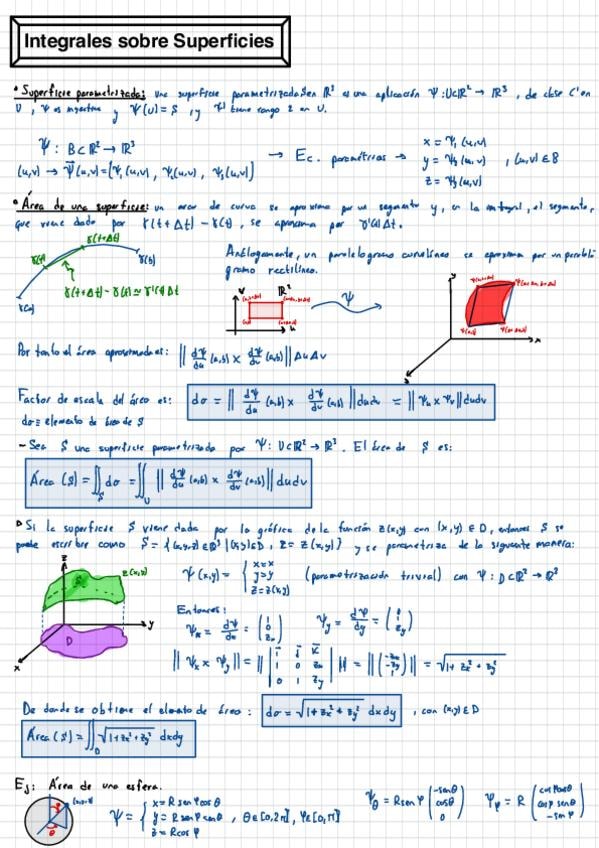 Integrales sobre Superficies
• Superficie parametrizada: una superficie parametrizada S en ℝ³ es una aplicación Ψ: U⊂ℝ² → ℝ³, de clase C¹ en
U, Ψ es inyectiva y Ψ(U) = S, y Ψ' tiene rango 2 en U.
Ψ: B⊂ℝ² → ℝ³
(u,v) → Ψ(u,v) = (Ψ₁(u,v), Ψ₂(u,v), Ψ₃(u,v)) → Ec. paramétricas →
x = Ψ₁(u,v)
y = Ψ₂(u,v) , (u,v) ∈ B
z = Ψ₃(u,v)
• Área de una superficie: un arco de curva se aproxima por un segmento y, en la integral, el segmento,
que viene dado por γ(t+Δt) - γ(t), se aproxima por γ'(t)Δt.
γ(t+Δt)
γ(t)
γ(b)
γ(t+Δt) - γ(t) ≃ γ'(t)Δt
γ(a)
Análogamente, un paralelogramo curvilíneo se aproxima por un paralelo
gramo rectilíneo.
v ℝ² u
Ψ
y
x
z
Por tanto el área aproximada es: || dΨ/du (a,b) × dΨ/dv (a,b) || Δu Δv
Factor de escala del área es: dσ = || dΨ/du (a,b) × dΨ/dv (a,b) || du dv = || Ψu × Ψv || du dv
dσ ≡ elemento de área de S
- Sea S una superficie parametrizada por Ψ: U⊂ℝ² → ℝ³. El área de S es:
Área (S) = ∬_S dσ = ∬_U || dΨ/du (a,b) × dΨ/dv (a,b) || du dv
▷ Si la superficie S viene dada por la gráfica de la función z(x,y) con (x,y) ∈ D, entonces S se
puede escribir como S = {(x,y,z) ∈ ℝ³ | (x,y) ∈ D, z = z(x,y)} y se parametriza de la siguiente manera:
z
S
z(x,y)
D
y
x
Ψ(x,y) = { x=x
y=y
z=z(x,y)
(parametrización trivial) con Ψ: D⊂ℝ² → ℝ³
Entonces:
Ψx = dΨ/dx = (1 0 zx) Ψy = dΨ/dy = (0 1 zy)
|| Ψx × Ψy || = || | i j k | 1 0 zx | 0 1 zy | || = || (-zx -zy 1) || = √(1+zx²+zy²)
De donde se obtiene el elemento de área: dσ = √(1+zx²+zy²) dxdy , con (x,y) ∈ D
Área (S) = ∬_D √(1+zx²+zy²) dxdy
Ej: Área de una esfera.
Ψ = { x = R sen φ cos θ
y = R sen φ sen θ , θ∈[0,2π], φ∈[0,π]
z = R cos φ
Ψθ = R sen φ (-sen θ cos θ 0) Ψφ = R (cos φ cos θ cos φ sen θ -sen φ)